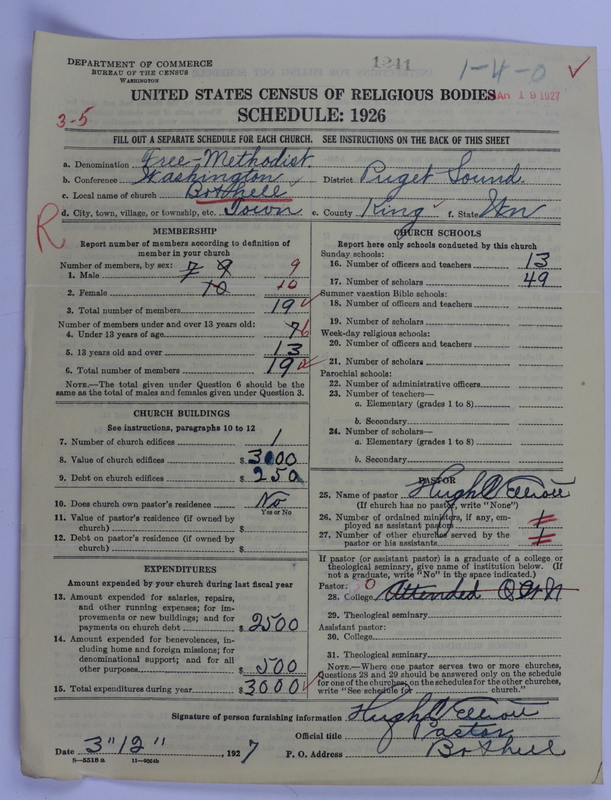 DEPARTMENT OF COMMERCE
BUREAU OF THE CENSUS
WASHINGTON
1241
1-4-0
UNITED STATES CENSUS OF RELIGIOUS BODIES
19 1927
3-5
SCHEDULE: 1926
FILL OUT A SEPARATE SCHEDULE FOR EACH CHURCH. SEE INSTRUCTIONS ON THE BACK OF THIS SHEET
a. Denomination Free-Methodist.
b. Conference Washington District Puget Sound.
c. Local name of church Bothell
d. City, town, village, or township, etc. Town e. County King f. State Wn
R
MEMBERSHIP
Report number of members according to definition of
member in your church
Number of members, by sex:
1. Male 7 9 9
2. Female 10 10
3. Total number of members 19
Number of members under and over 13 years old:
4. Under 13 years of age 7 6
5. 13 years old and over 13
6. Total number of members 19
NOTE.—The total given under Question 6 should be the
same as the total of males and females given under Question 3.
CHURCH BUILDINGS
See instructions, paragraphs 10 to 12
7. Number of church edifices 1
8. Value of church edifices $ 3000
9. Debt on church edifices $ 250
10. Does church own pastor's residence No
Yes or No
11. Value of pastor's residence (if owned by
church) $
12. Debt on pastor's residence (if owned by
church) $
EXPENDITURES
Amount expended by your church during last fiscal year
13. Amount expended for salaries, repairs,
and other running expenses; for im-
provements or new buildings; and for
payments on church debt $ 2500
14. Amount expended for benevolences, in-
cluding home and foreign missions; for
denominational support; and for all
other purposes $ 500
15. Total expenditures during year $ 3000
CHURCH SCHOOLS
Report here only schools conducted by this church
Sunday schools:
16. Number of officers and teachers 13
17. Number of scholars 49
Summer vacation Bible schools:
18. Number of officers and teachers
19. Number of scholars
Week-day religious schools:
20. Number of officers and teachers
21. Number of scholars
Parochial schools:
22. Number of administrative officers
23. Number of teachers—
a. Elementary (grades 1 to 8)
b. Secondary
24. Number of scholars—
a. Elementary (grades 1 to 8)
b. Secondary
PASTOR
25. Name of pastor Hugh Elliott
(If church has no pastor, write "None")
26. Number of ordained ministers, if any, em-
ployed as assistant pastors
27. Number of other churches served by the
pastor or his assistants
If pastor (or assistant pastor) is a graduate of a college or
theological seminary, give name of institution below. (If
not a graduate, write "No" in the space indicated.)
Pastor:
28. College Attended
29. Theological seminary
Assistant pastor:
30. College
31. Theological seminary
NOTE.—Where one pastor serves two or more churches,
Questions 28 and 29 should be answered only on the schedule
for one of the churches; on the schedules for the other churches,
write "See schedule for church."
Signature of person furnishing information Hugh Elliott
Official title Pastor
Date 3"12" , 1927 P. O. Address Bothell
8—5518 a 11—9064b